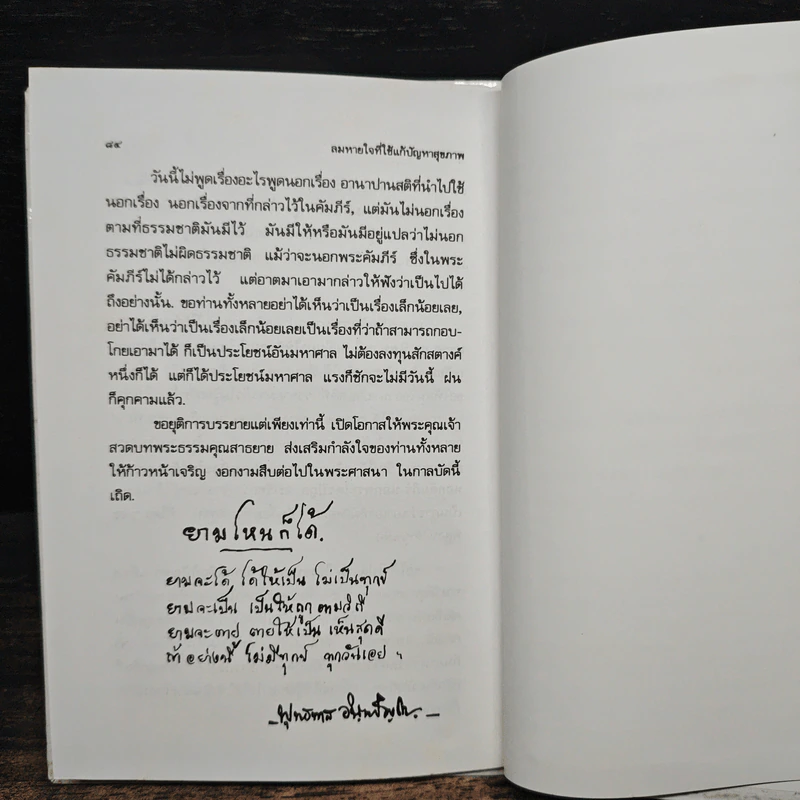 ๘๕
ลมหายใจที่ใช้แก้ปัญหาสุขภาพ
วันนี้ไม่พูดเรื่องอะไรพูดนอกเรื่อง อานาปานสติที่นำไปใช้
นอกเรื่อง นอกเรื่องจากที่กล่าวไว้ในคัมภีร์, แต่มันไม่นอกเรื่อง
ตามที่ธรรมชาติมันมีไว้ มันมีให้หรือมันมีอยู่แปลว่าไม่นอก
ธรรมชาติไม่ผิดธรรมชาติ แม้ว่าจะนอกพระคัมภีร์ ซึ่งในพระ
คัมภีร์ไม่ได้กล่าวไว้ แต่อาตมาเอามากล่าวให้ฟังว่าเป็นไปได้
ถึงอย่างนั้น. ขอท่านทั้งหลายอย่าได้เห็นว่าเป็นเรื่องเล็กน้อยเลย,
อย่าได้เห็นว่าเป็นเรื่องเล็กน้อยเลยเป็นเรื่องที่ว่าถ้าสามารถกอบ-
โกยเอามาได้ ก็เป็นประโยชน์อันมหาศาล ไม่ต้องลงทุนสักสตางค์
หนึ่งก็ได้ แต่ก็ได้ประโยชน์มหาศาล แรงก็ชักจะไม่มีวันนี้ ฝน
ก็คุกคามแล้ว.
ขอยุติการบรรยายแต่เพียงเท่านี้ เปิดโอกาสให้พระคุณเจ้า
สวดบทพระธรรมคุณสาธยาย ส่งเสริมกำลังใจของท่านทั้งหลาย
ให้ก้าวหน้าเจริญ งอกงามสืบต่อไปในพระศาสนา ในกาลบัดนี้
เถิด.
ยามไหนก็ได้.
ยามจะได้ ได้ให้เป็น ไม่เป็นทุกข์
ยามจะเป็น เป็นให้ถูก ตามวิถี
ยามจะตาย ตายให้เป็น เห็นสุดดี
ถ้าอย่างนี้ ไม่มีทุกข์ ทุกวันเอย ฯ
– พุทธทาส อินฺทปัญฺโญ. –